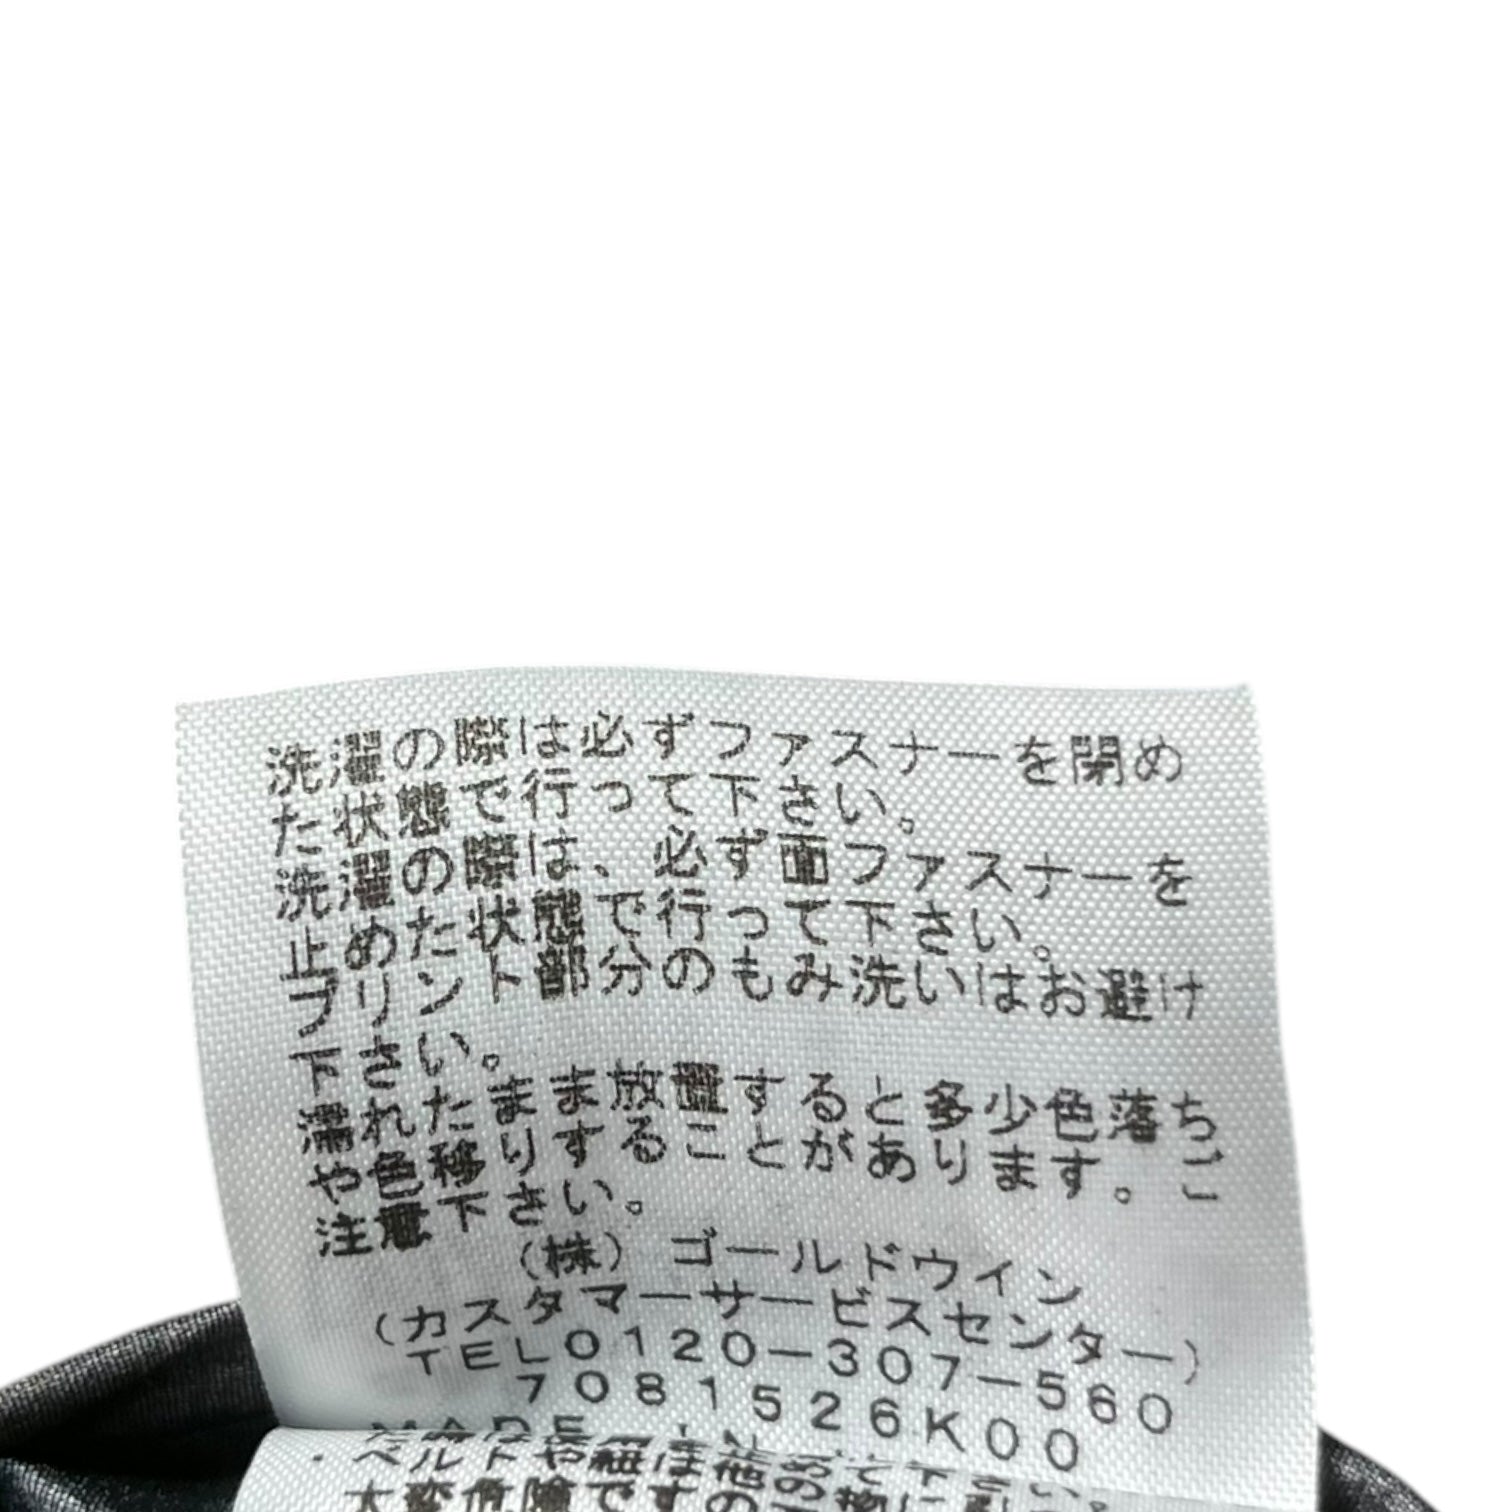 洗濯の際は必ずファスナーを閉め
た状態で行って下さい。
洗濯の際は、必ず面ファスナーを
止めた状態で行って下さい。
プリント部分のもみ洗いはお避け
下さい。
濡れたまま放置すると多少色落ち
や色移りすることがあります。ご
注意下さい。
(株)ゴールドウイン
(カスタマーサービスセンター)
TEL0120-307-560
7081526K00
MADE IN
ベルトや紐は他の
大変危険です